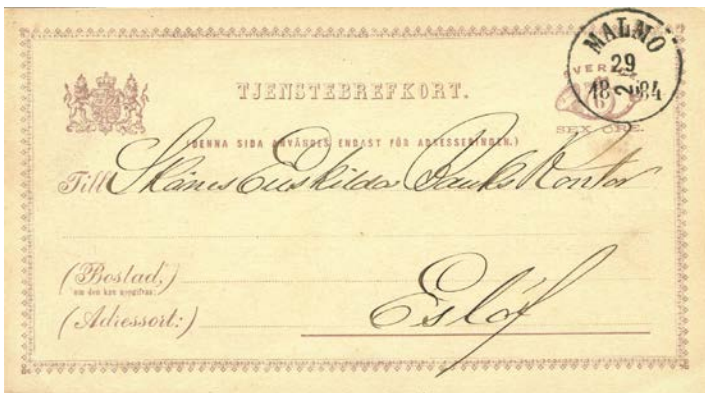 MALMÖ
29
2
18 84
TJENSTEBREFKORT.
SEX ÖRE.
(DENNA SIDA ANVÄNDES ENDAST FÖR ADRESSERINGEN.)
Till Skånes Enskilda Banks Kontor
(Bostad,)
om den kan uppgifvas:
(Adressort:) Eslöf